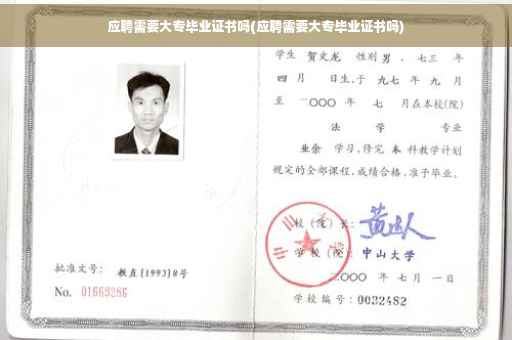 应聘需要大专毕业证书吗(应聘需要大专毕业证书吗)
学生 贺文龙 性别 男 ，七三 年
四 月 日生，于 九七 年 九 月
至 二〇〇〇 年 七 月在本校(院)
法 学 专业
业余 学习，修完 本 科教学计划
规定的全部课程，成绩合格，准予毕业。
校（院）长：
学校（院）：中山大学
二〇〇〇 年 七 月 一 日
学校编号：0032482
批准文号：教直[1993]8号
No. 01669286